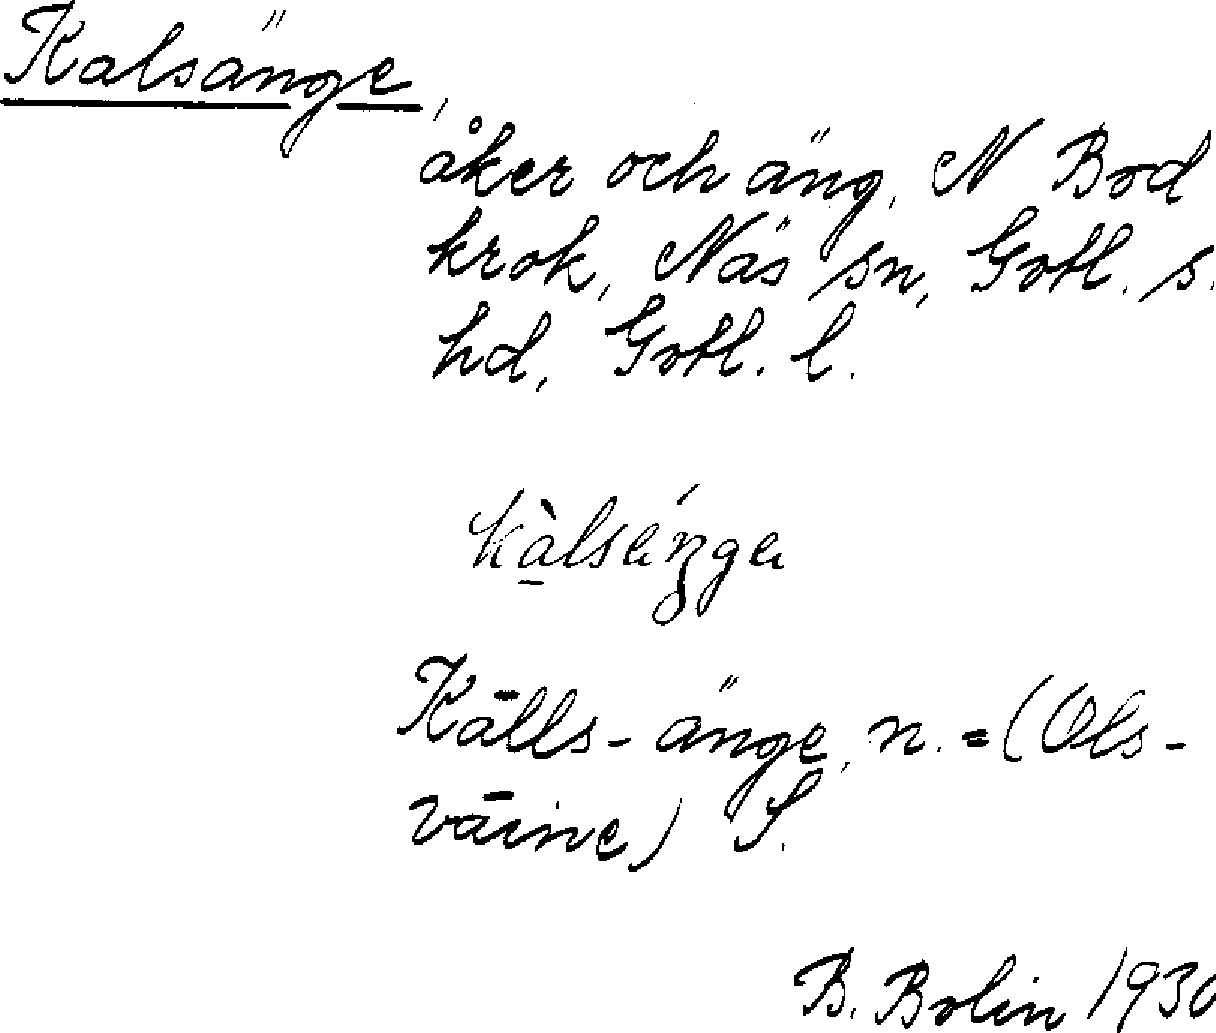 Kalsänge,
åker och äng, N Bod
krok, Näs sn, Gotl. s.
hd, Gotl. l.
Källs-änge, n. = (Ols-
väine) S.
B. Bolin 1930